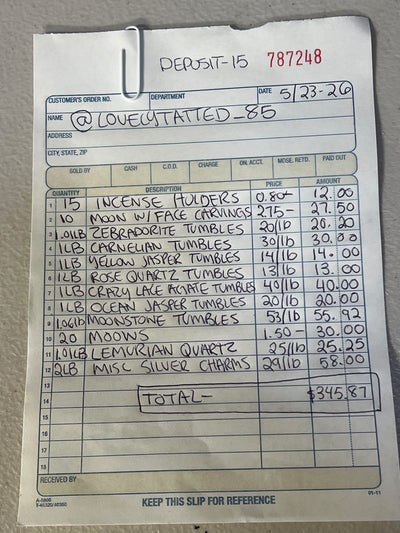 DEPOSIT-15 787248
CUSTOMER'S ORDER NO. DEPARTMENT DATE 5/23-26
NAME @LOVELYTATTED_85
ADDRESS
CITY, STATE, ZIP
SOLD BY CASH C.O.D. CHARGE ON. ACCT. MDSE. RETD. PAID OUT
QUANTITY DESCRIPTION PRICE AMOUNT
1 15 INCENSE HOLDERS 0.80- 12.00
2 10 MOON W/ FACE CARVINGS 2.75- 27.50
3 1.01LB ZEBRADORITE TUMBLES 20/lb 20.20
4 1LB CARNELIAN TUMBLES 30/lb 30.00
5 1LB YELLOW JASPER TUMBLES 14/lb 14.00
6 1LB ROSE QUARTZ TUMBLES 13/lb 13.00
7 1LB CRAZY LACE AGATE TUMBLES 40/lb 40.00
8 1LB OCEAN JASPER TUMBLES 20/lb 20.00
9 MOONSTONE TUMBLES 53/lb 55.92
10 20 MOONS 1.50- 30.00
11 1.01LB LEMURIAN QUARTZ 25/lb 25.25
12 2LB MISC SILVER CHARMS 29/lb 58.00
13
14 TOTAL- $345.87
15
16
17
18
RECEIVED BY
KEEP THIS SLIP FOR REFERENCE 01-11